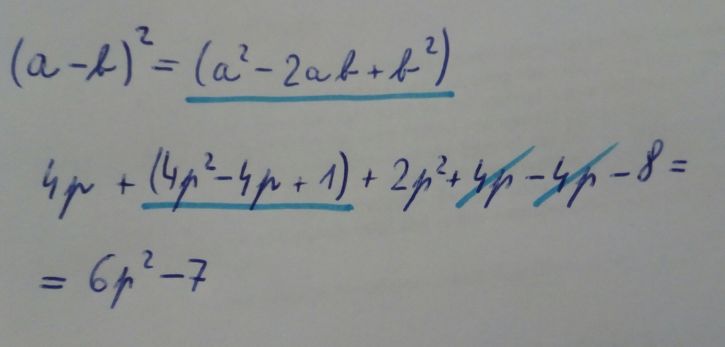 (a-b)² = (a²-2ab+b²)
4p + (4p²-4p+1) + 2p²+4p-4p-8=
= 6p²-7